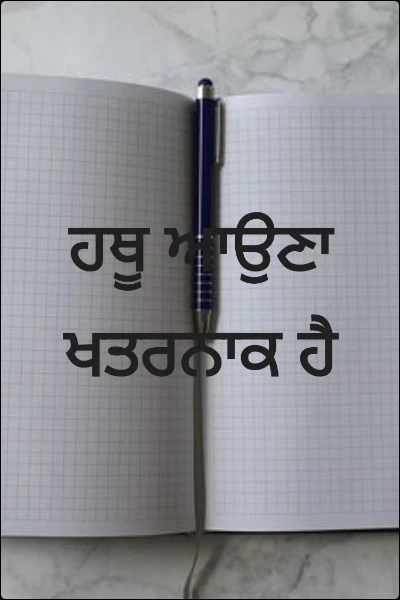 ਹਥੂ ਆਉਣਾ
ਖਤਰਨਾਕ ਹੈ